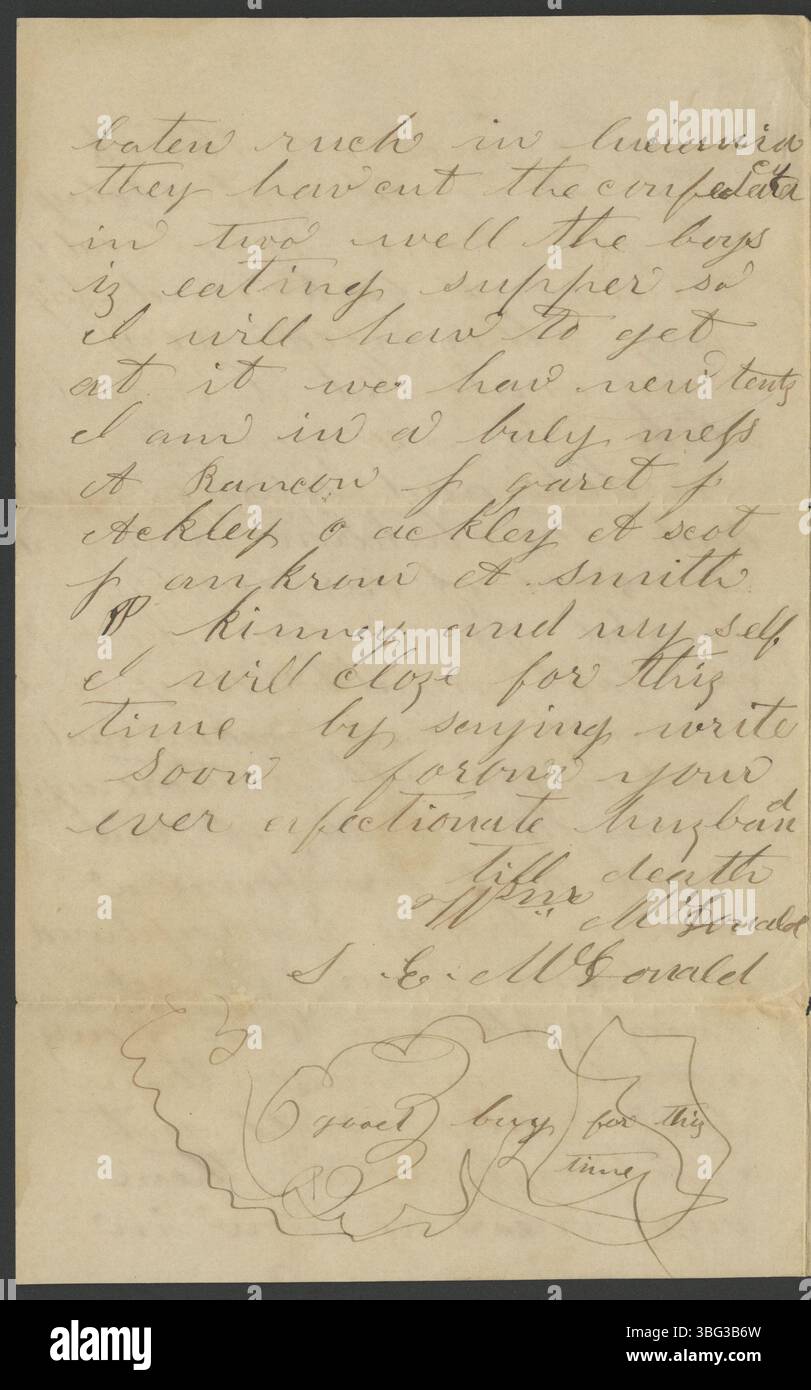 baten ruch in
they hav cut the confedarcy
in two well the boys
iz eating supper so
I will hav to get
at it we hav new tentz
I am in a buly mess
A Rancon J garet J
Ackley O ackley A scot
J ankrom A smith
P kinney and my self
I will cloze for thiz
time by saying write
soon forom your
ever afectionate huzband
till death
Wm McDonald
S. E. McDonald
good buy for thiz
time
alamy
Image ID: 3BG3B6W
www.alamy.com